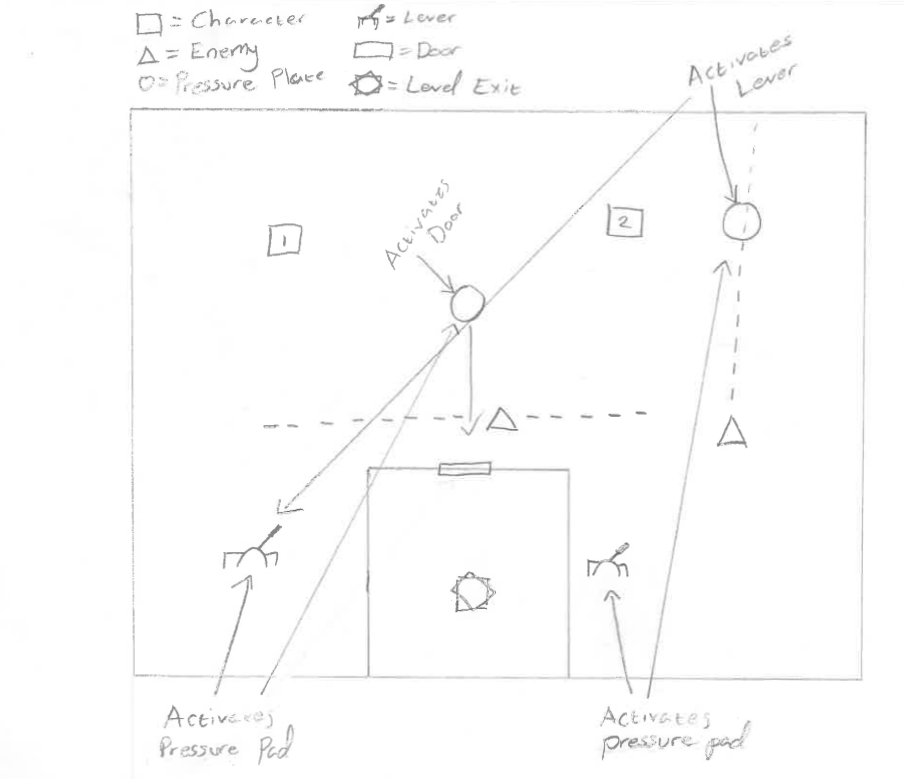 = Character
= Enemy
= Pressure Plate
= Lever
= Door
= Level Exit
Activates
Lever
Activates
Door
1
2
Activates
Pressure Pad
Activates
pressure pad